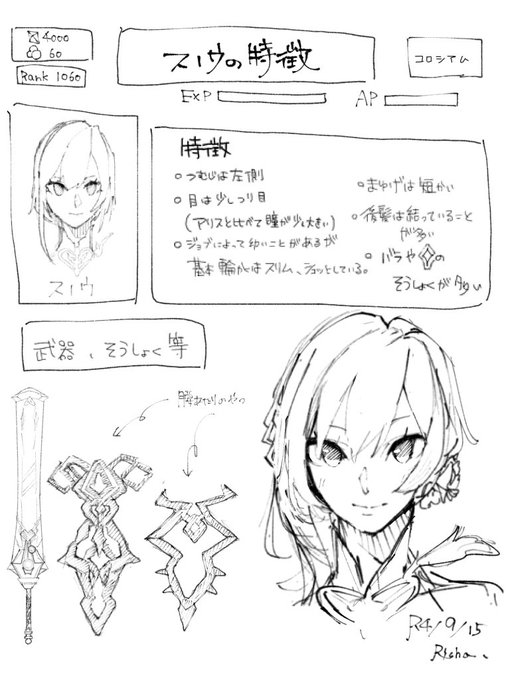 4000
60
Rank 1060
スノウの特徴
コロシアム
EXP
AP
スノウ
特徴
○つむじは左側
○目は少しつり目
(アリスと比べて瞳が少し大きい)
○ジョブによって幼いことがあるが
基本 輪かくはスリム、シュッとしている。
○まゆげは短かい
○後髪は結っていること
が多い
○バラや の
そうしょくが多い
武器、そうしょく等
R4/9/15
Risha.